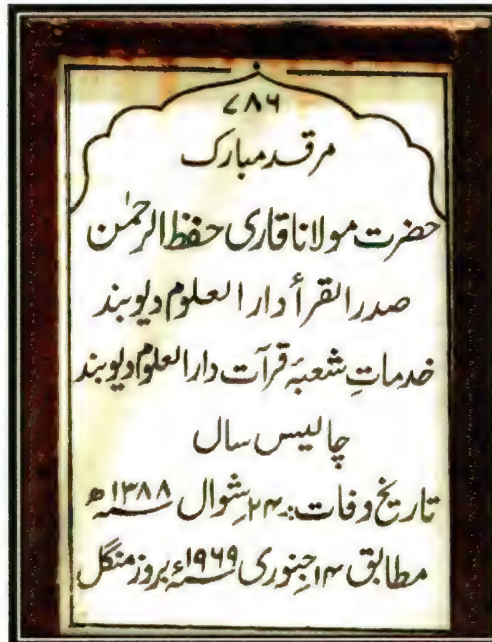 ۷۸۶
مرقد مبارک
حضرت مولانا قاری حفظ الرحمٰن
صدر القرأ دار العلوم دیوبند
خدماتِ شعبۂ قرآت دار العلوم دیوبند
چالیس سال
تاریخ وفات:۔ ۲۴ شوال ۱۳۸۸ھ
مطابق ۱۴ جنوری ۱۹۶۹ء بروز منگل